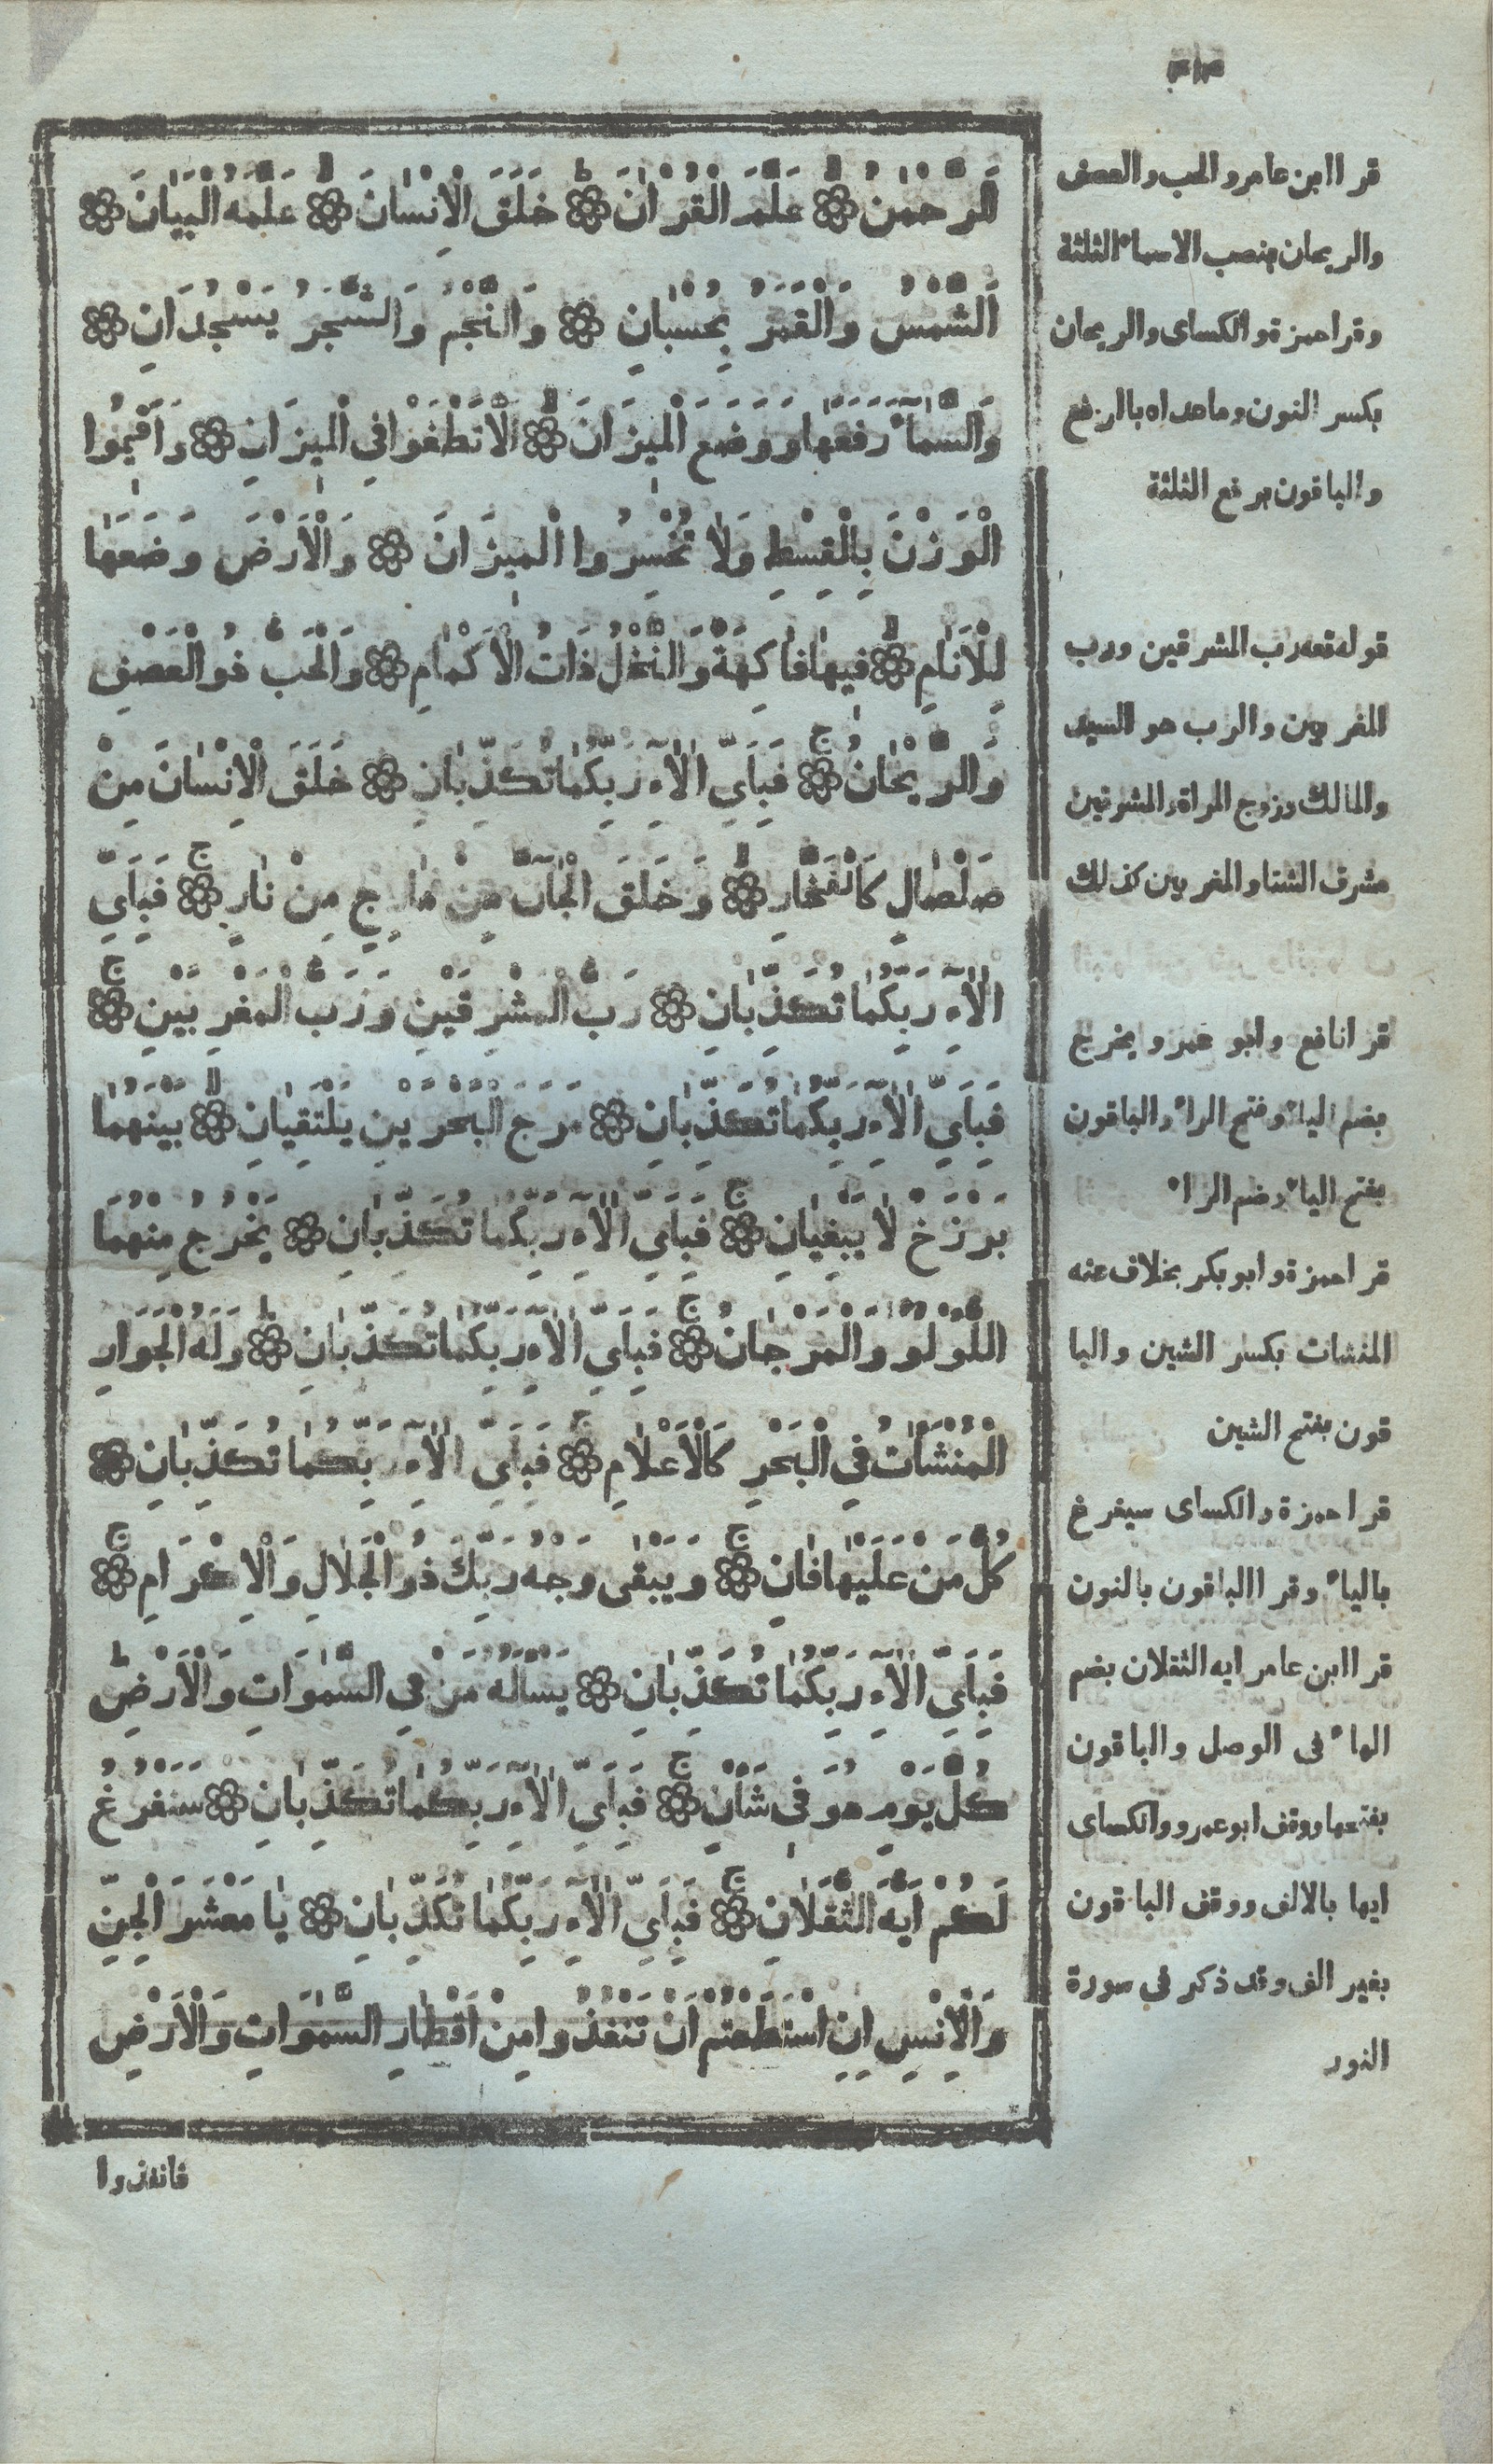 اَلرَّحْمٰنُ ۙ عَلَّمَ الْقُرْاٰنَ ؕ خَلَقَ الْاِنْسٰانَ ۙ عَلَّمَهُ الْبَيٰانَ
اَلشَّمْسُ وَالْقَمَرُ بِحُسْبٰانٍ وَالنَّجْمُ وَالشَّجَرُ يَسْجُدَانِ
وَالسَّمٰٓاءَ رَفَعَهٰا وَوَضَعَ الْمِيزَانَ ۙ اَلّٰا تَطْغَوْا فِي الْمِيزَانِ وَاَقِيمُوا
الْوَزْنَ بِالْقِسْطِ وَلٰا تُخْسِرُوا الْمِيزَانَ وَالْاَرْضَ وَضَعَهٰا
لِلْاَنٰامِ ۙ فِيهٰا فٰاكِهَةٌ وَالنَّخْلُ ذَاتُ الْاَكْمٰامِ وَالْحَبُّ ذُو الْعَصْفِ
وَالرَّيْحٰانُ ۚ فَبِاَيِّ اٰلٰٓاءِ رَبِّكُمٰا تُكَذِّبٰانِ خَلَقَ الْاِنْسٰانَ مِنْ
صَلْصٰالٍ كَالْفَخّٰارِ ۙ وَخَلَقَ الْجٰٓانَّ مِنْ مٰارِجٍ مِنْ نٰارٍ ۚ فَبِاَيِّ
اٰلٰٓاءِ رَبِّكُمٰا تُكَذِّبٰانِ رَبُّ الْمَشْرِقَيْنِ وَرَبُّ الْمَغْرِبَيْنِ ۚ
فَبِاَيِّ اٰلٰٓاءِ رَبِّكُمٰا تُكَذِّبٰانِ مَرَجَ الْبَحْرَيْنِ يَلْتَقِيٰانِ ۙ بَيْنَهُمٰا
بَرْزَخٌ لٰا يَبْغِيٰانِ ۚ فَبِاَيِّ اٰلٰٓاءِ رَبِّكُمٰا تُكَذِّبٰانِ يَخْرُجُ مِنْهُمَا
اللُّؤْلُؤُ وَالْمَرْجٰانُ ۚ فَبِاَيِّ اٰلٰٓاءِ رَبِّكُمٰا تُكَذِّبٰانِ ؕ وَلَهُ الْجَوَارِ
الْمُنْشَاٰتُ فِي الْبَحْرِ كَالْاَعْلٰامِ ۚ فَبِاَيِّ اٰلٰٓاءِ رَبِّكُمٰا تُكَذِّبٰانِ
كُلُّ مَنْ عَلَيْهٰا فٰانٍ ۚ وَيَبْقٰى وَجْهُ رَبِّكَ ذُو الْجَلٰالِ وَالْاِكْرَامِ ۚ
فَبِاَيِّ اٰلٰٓاءِ رَبِّكُمٰا تُكَذِّبٰانِ يَسْاَلُهُ مَنْ فِي السَّمٰوَاتِ وَالْاَرْضِ ؕ
كُلَّ يَوْمٍ هُوَ فِي شَاْنٍ ۚ فَبِاَيِّ اٰلٰٓاءِ رَبِّكُمٰا تُكَذِّبٰانِ سَنَفْرُغُ
لَكُمْ اَيُّهَ الثَّقَلٰانِ ۚ فَبِاَيِّ اٰلٰٓاءِ رَبِّكُمٰا تُكَذِّبٰانِ يٰا مَعْشَرَ الْجِنِّ
وَالْاِنْسِ اِنِ اسْتَطَعْتُمْ اَنْ تَنْفُذُوا مِنْ اَقْطٰارِ السَّمٰوَاتِ وَالْاَرْضِ
فانفذوا
قرا ابن عامر والحب والعصف
والريحان بنصب الاسماء الثلثة
وقرا حمزة والكساى والريحان
بكسر النون وما عداه بالرفع
والباقون برفع الثلثة
قوله تعه رب المشرقين ورب
المغربين والرب هو السيد
والمالك وزوج المراة والمشرقين
مشرق الشتا والمغربين كذلك
قرا نافع وابو عمرو يخرج
بضم الياء وفتح الراء والباقون
بفتح الياء وضم الراء
قرا حمزة وابو بكر بخلاف عنه
المنشات بكسر الشين والبا
قون بفتح الشين
قرا حمزة والكساى سيفرغ
بالياء وقرا الباقون بالنون
قرا ابن عامر ايه الثقلان بضم
الهاء فى الوصل والباقون
بفتحها ووقف ابو عمرو والكساى
ايها بالالف ووقف الباقون
بغير الف وقد ذكر فى سورة
النور